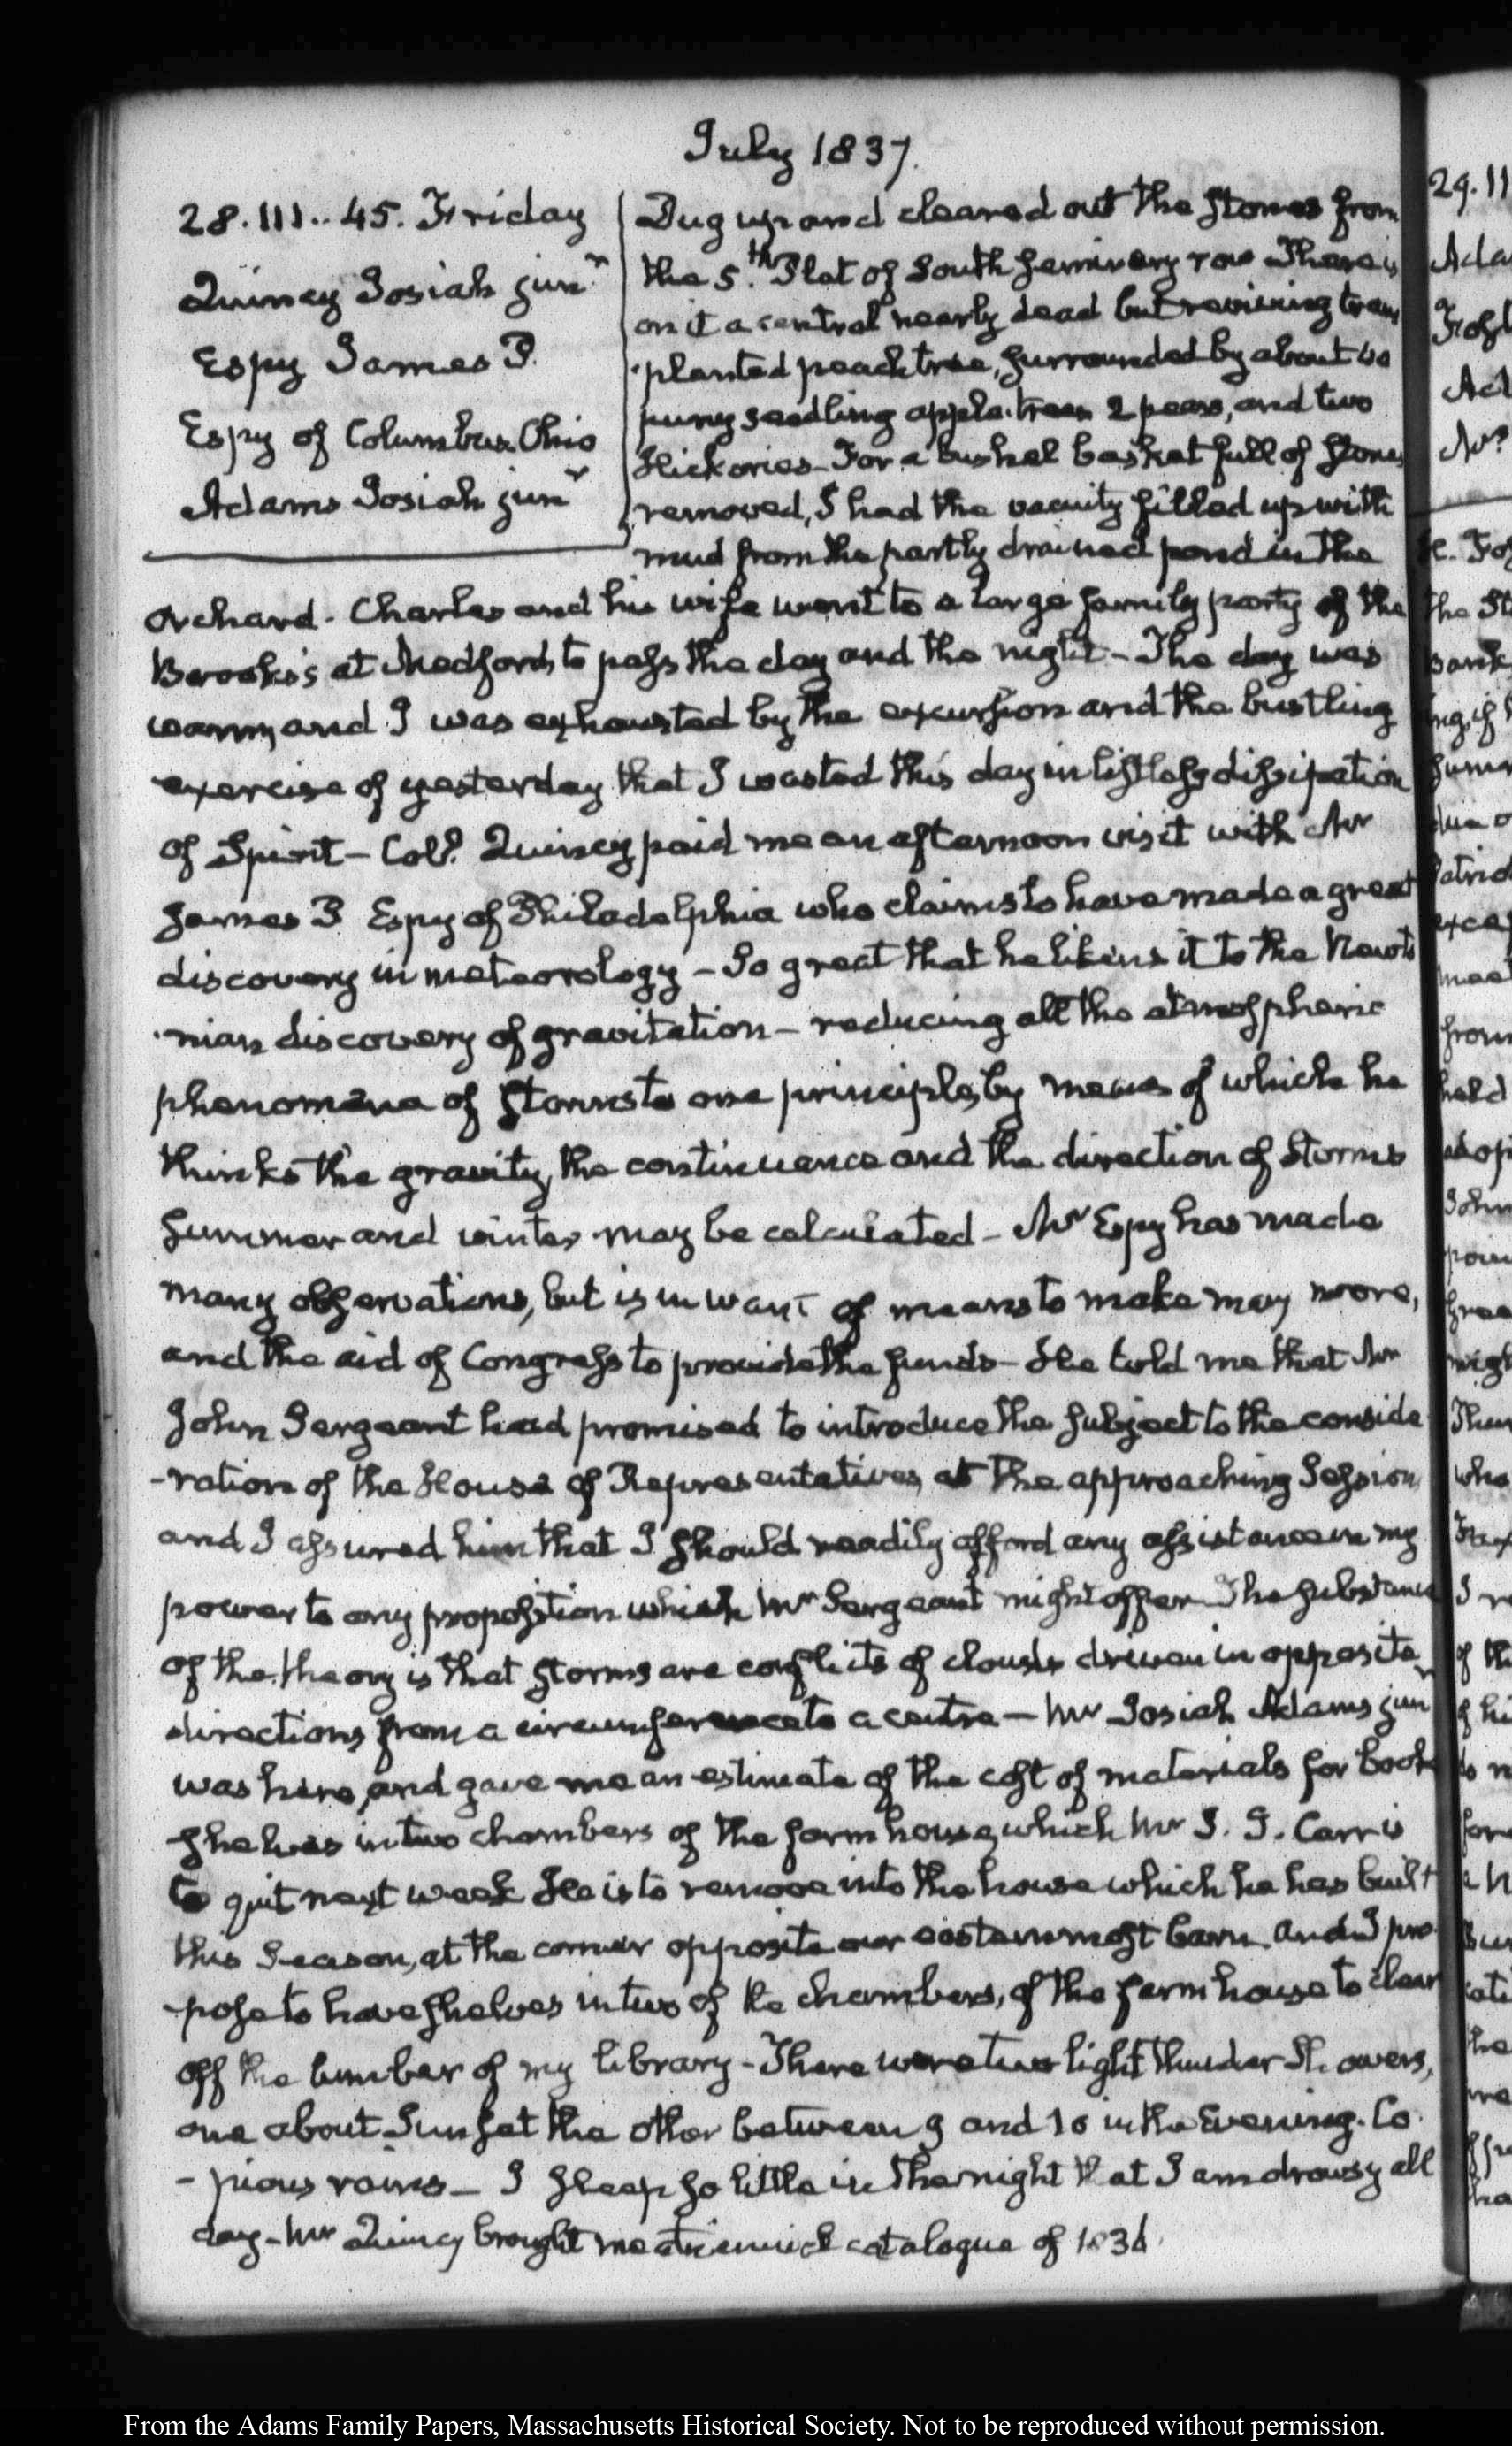 July 1837.
28. III.. 45. Friday
Quincy Josiah junr.
Espy James P.
Espy of Columbus. Ohio
Adams Josiah junr
Dug up and cleared out the stones from
the 5th. Plat of South Seminary row There is
on it a central nearly dead but reviving trans
planted peach tree, surrounded by about
puny seedling apple-trees 2 pears, and two
Hickories - For a bushel basket full of stones
removed, I had the vacuity filled up with
mud from the partly drained pond in the
orchard. Charles and his wife went to a large family party of the
Brooks's at Medford, to pass the day and the night - The day was
warm, and I was exhausted by the excursion and the bustling
exercise of yesterday that I wasted this day in listless dissipation
of Spirit - Coll. Quincy paid me an afternoon visit with Mr
James P Espy of Philadelphia who claims to have made a great
discovery in meteorology - So great that he likens it to the Newto
nian discovery of gravitation - reducing all the atmospheric
phenomena of storms to one principle, by means of which he
thinks the gravity, the continuance and the direction of Storms
summer and winter may be calculated - Mr Espy has made
many observations, but is in want of means to make many more,
and the aid of Congress to provide the funds - He told me that Mr
John Sergeant had promised to introduce the subject to the conside
-ration of the House of Representatives, at the approaching Session
and I assured him that I should readily afford any assistance in my
power to any proposition which Mr Sergeant might offer - The substance
of the theory is that storms are conflicts of clouds driven in opposite
directions from a circumference to a centre - Mr Josiah Adams junr
was here, and gave me an estimate of the cost of materials for book
shelves in two chambers of the farm house, which Mr J. J. Carr is
to quit next week He is to remove into the house which he has built
this Season, at the corner opposite our easternmost barn and I pro
pose to have shelves in two of the chambers, of the farm house to clear
off the lumber of my library - There were two light thunder Showers,
one about Sunset the other between 9 and 10 in the Evening. Co
- pious rains - I sleep so little in the night that I am drowsy all
day - Mr Quincy brought me a triennial catalogue of 1836.
From the Adams Family Papers, Massachusetts Historical Society. Not to be reproduced without permission.